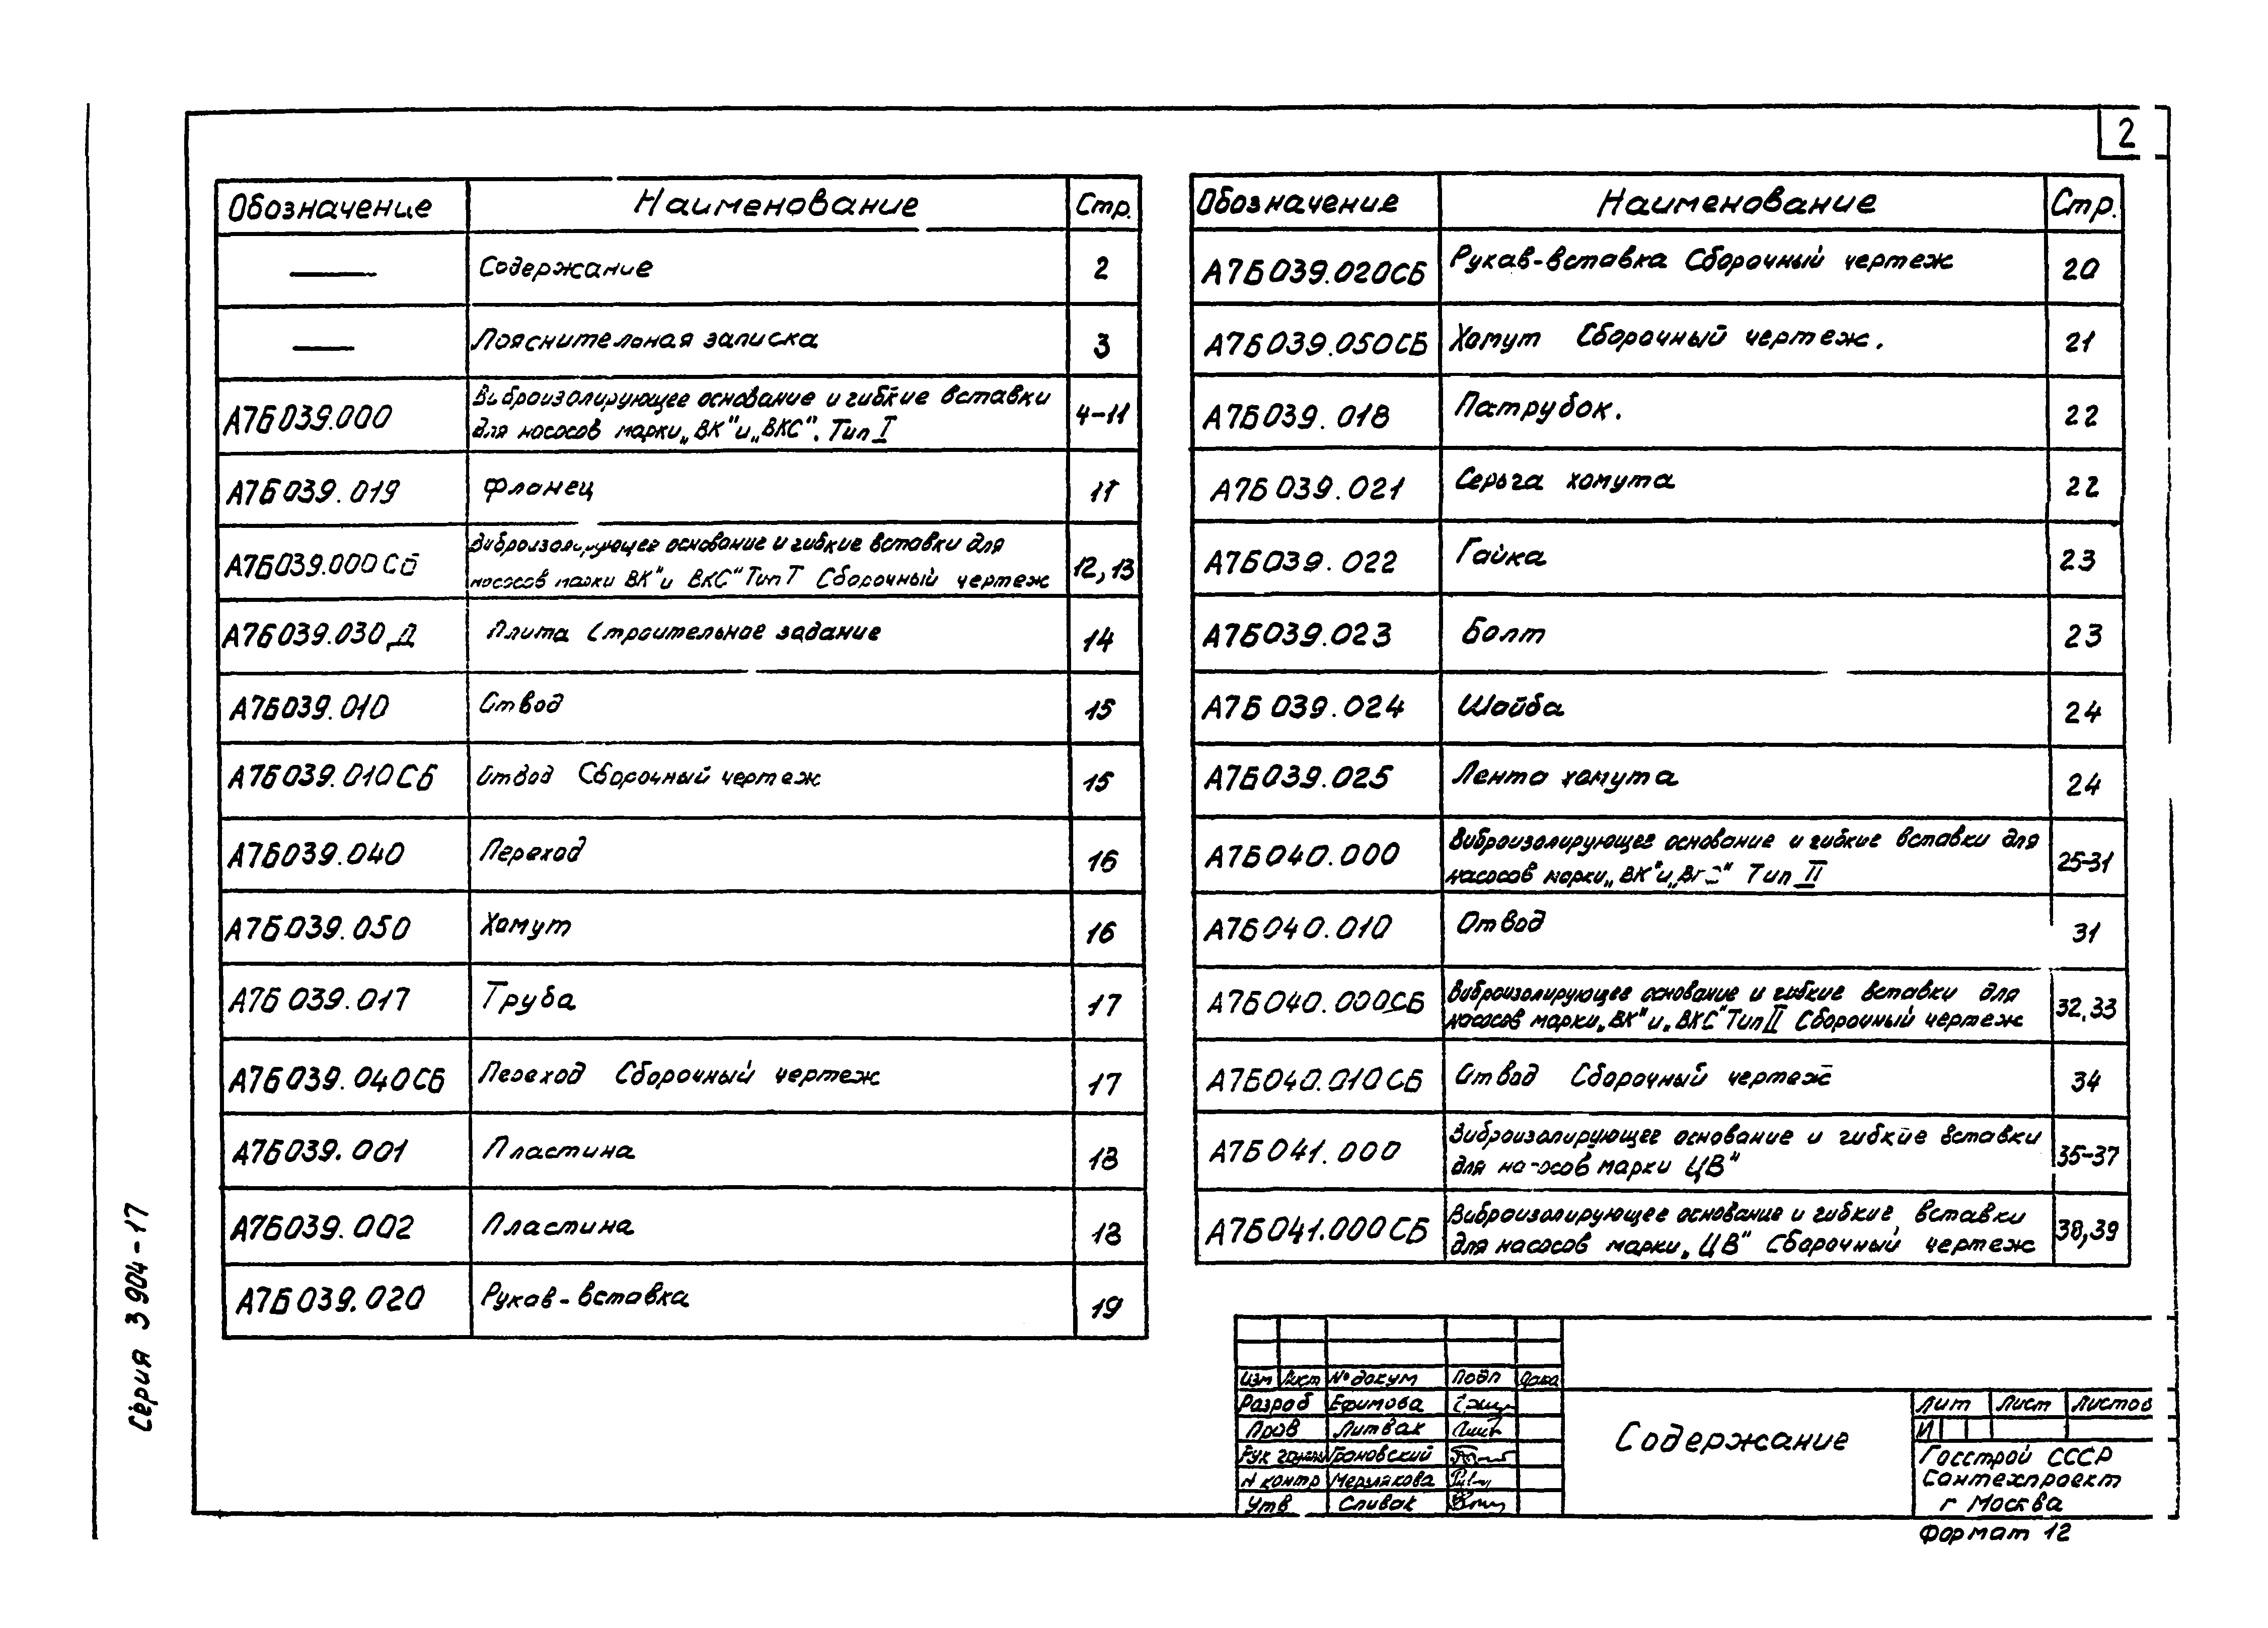 2
Обозначение Наименование Стр.
Содержание 2
Пояснительная записка 3
А7Б039.000 Виброизолирующее основание и гибкие вставки 4-11
для насосов марки „ВК" и „ВКС". Тип I
А7Б039.019 Фланец 11
А7Б039.000СБ Виброизолирующее основание и гибкие вставки для 12,13
насосов марки ВК" и ВКС" Тип I Сборочный чертеж
А7Б039.030Д Плита Строительное задание 14
А7Б039.010 Отвод 15
А7Б039.010СБ Отвод Сборочный чертеж 15
А7Б039.040 Переход 16
А7Б039.050 Хомут 16
А7Б039.017 Труба 17
А7Б039.040СБ Переход Сборочный чертеж 17
А7Б039.001 Пластина 18
А7Б039.002 Пластина 18
А7Б039.020 Рукав-вставка 19
Обозначение Наименование Стр.
А7Б039.020СБ Рукав-вставка Сборочный чертеж 20
А7Б039.050СБ Хомут Сборочный чертеж. 21
А7Б039.018 Патрубок. 22
А7Б039.021 Серьга хомута 22
А7Б039.022 Гайка 23
А7Б039.023 Болт 23
А7Б039.024 Шайба 24
А7Б039.025 Лента хомута 24
А7Б040.000 Виброизолирующее основание и гибкие вставки для 25-31
насосов марки „ВК" и „ВКС" Тип II
А7Б040.010 Отвод 31
А7Б040.000СБ Виброизолирующее основание и гибкие вставки для 32,33
насосов марки „ВК" и „ВКС" Тип II Сборочный чертеж
А7Б040.010СБ Отвод Сборочный чертеж 34
А7Б041.000 Виброизолирующее основание и гибкие вставки 35-37
для насосов марки ЦВ"
А7Б041.000СБ Виброизолирующее основание и гибкие вставки 38,39
для насосов марки „ЦВ" Сборочный чертеж
Серия 3 904-17
Изм Лист № докум Подп Дата
Разраб Ефимова
Пров Литвак
Рук группы Грановский
Н контр Мерзлякова
Утв Сливак
Содержание
Лит Лист Листов
И
Госстрой СССР
Сантехпроект
г Москва
Формат 12